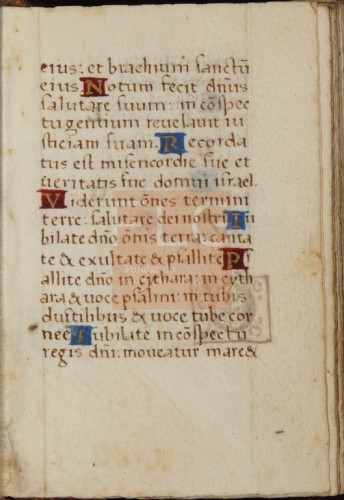 eius: et brachium sanctū
eius. Notum fecit dn̄us
salutare suum: in cōspec
tu gentium revelavit iu
sticiam suam. Recorda
tus est misericordie sue et
veritatis sue domui israel.
Viderunt ōnes termini
terre: salutare dei nostri. Iu
bilate dn̄o ōnis terra: canta
te & exultate & psallite. Ps
allite dn̄o in cythara: in cyth
ara & voce psalmi: in tubis
ductilibus & voce tube cor
nee. Iubilate in cōspectu
regis dn̄i: moveatur mare &